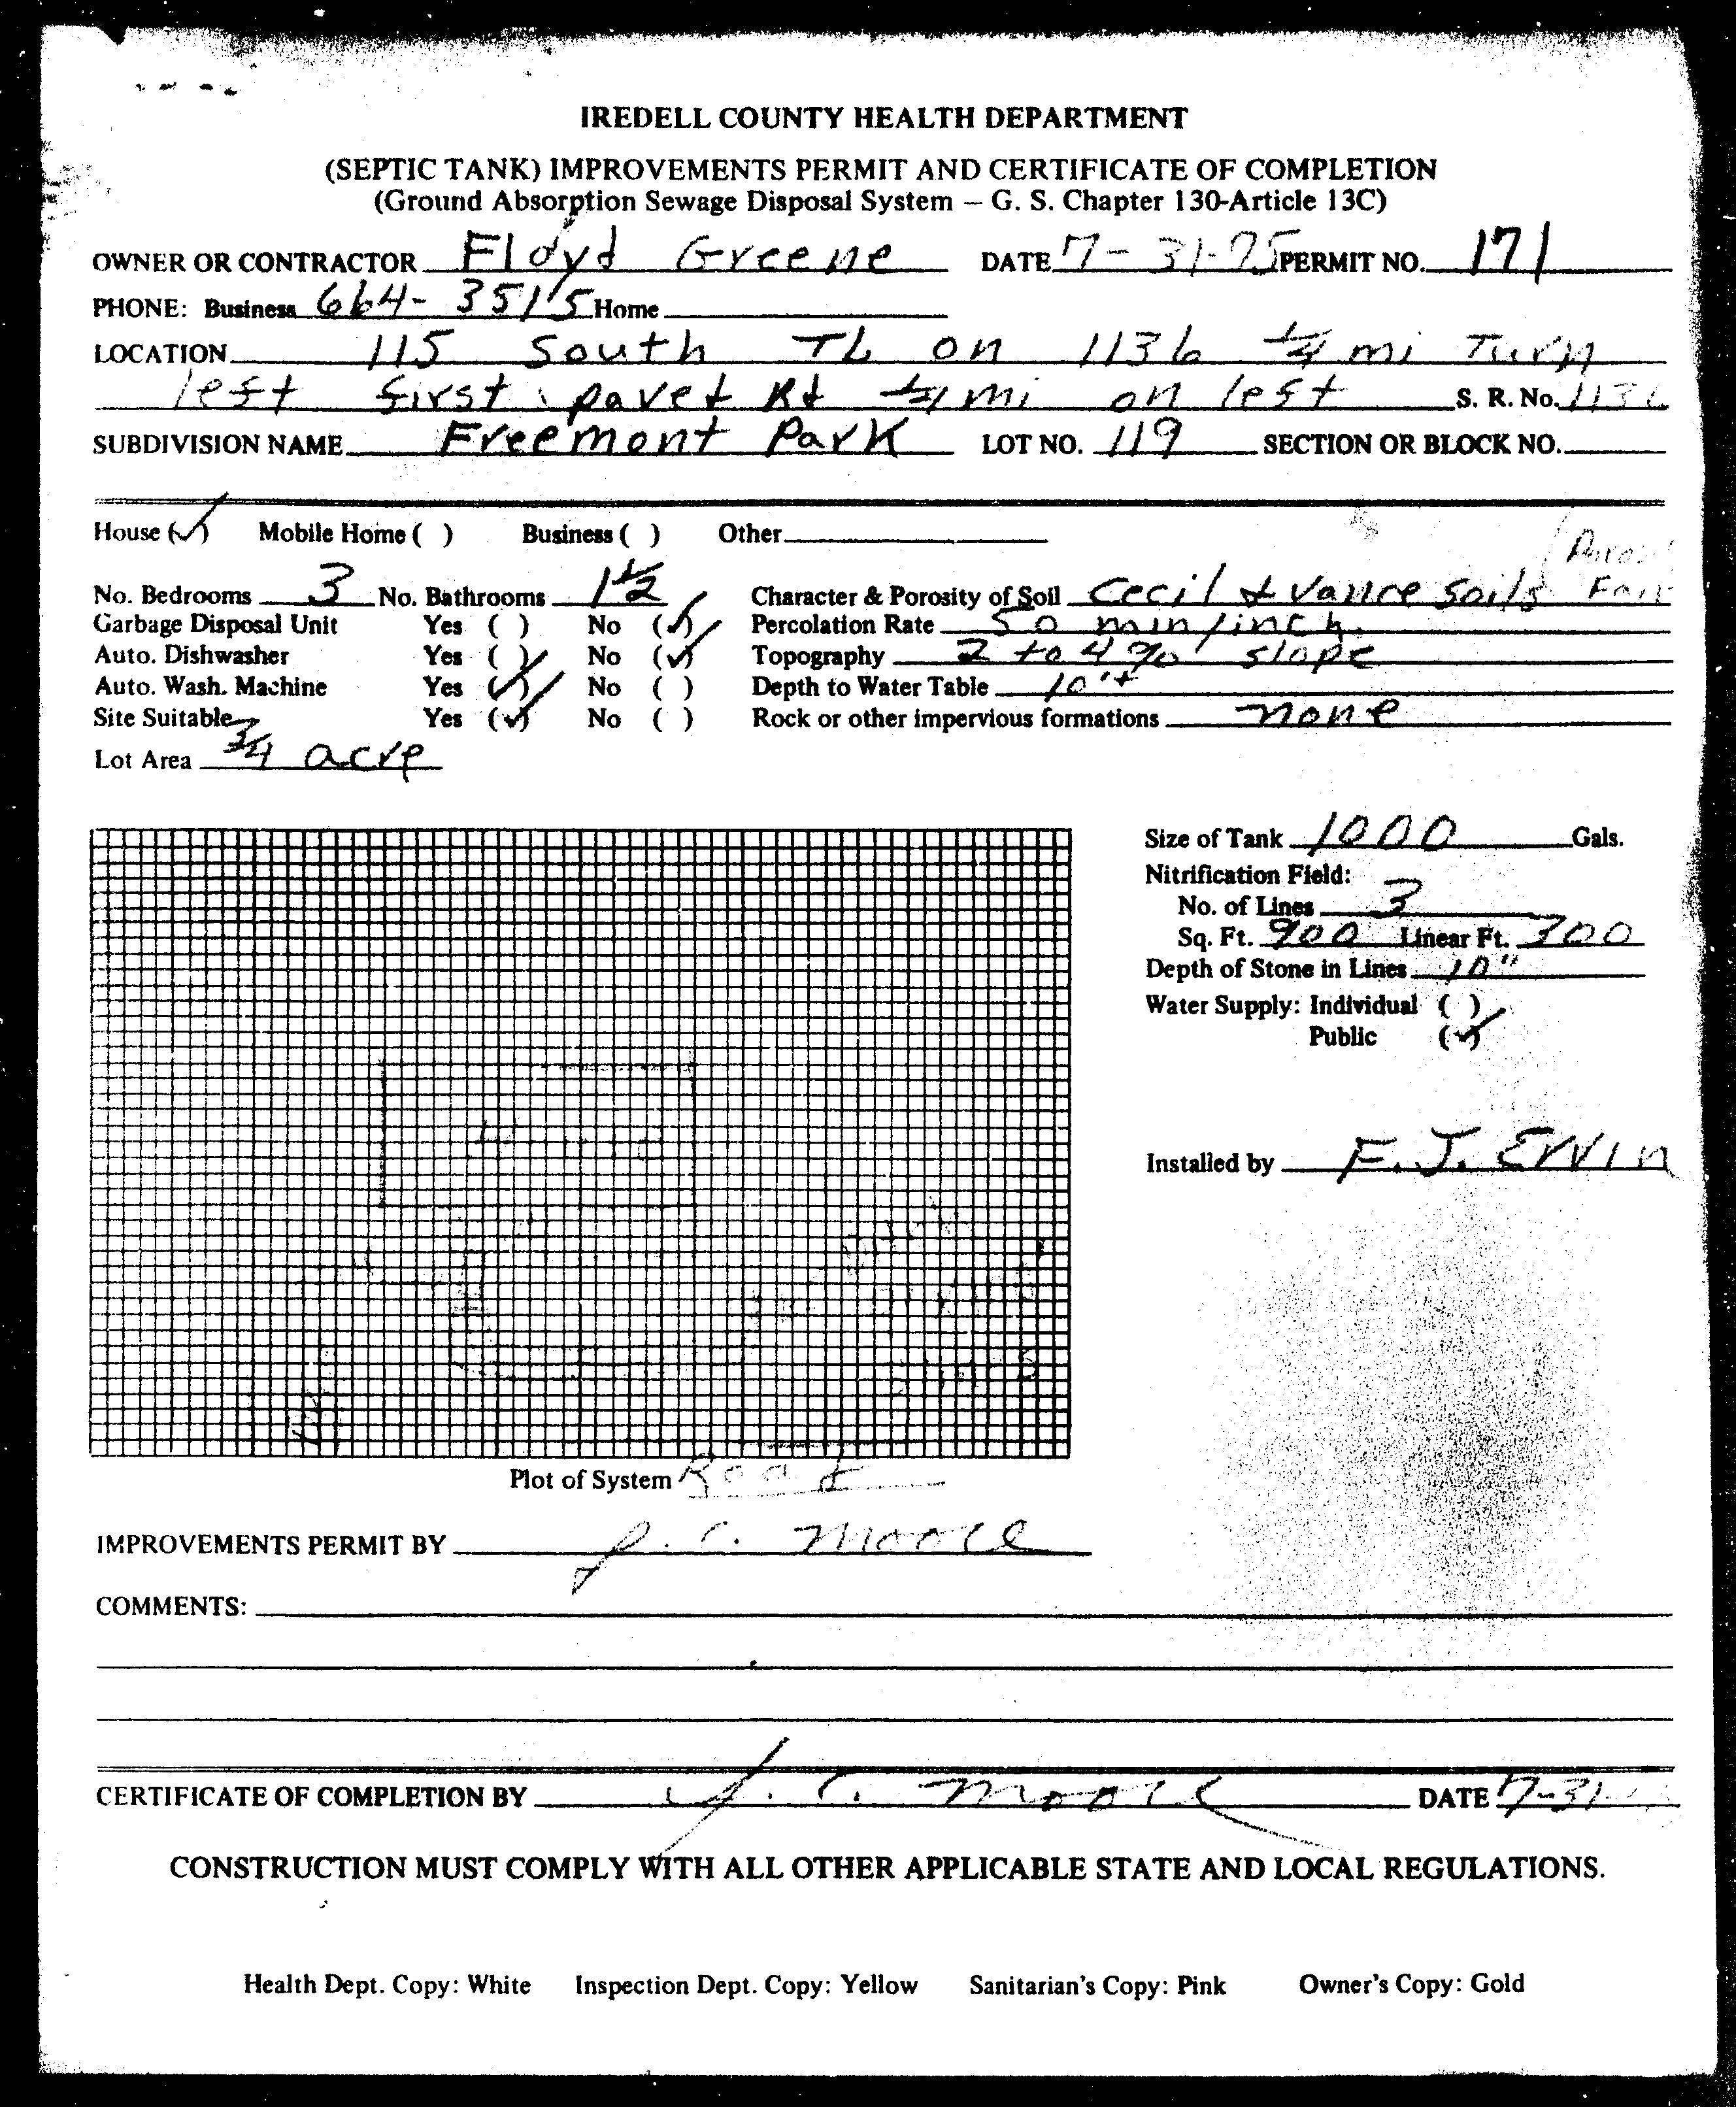 IREDELL COUNTY HEALTH DEPARTMENT
(SEPTIC TANK) IMPROVEMENTS PERMIT AND CERTIFICATE OF COMPLETION
(Ground Absorption Sewage Disposal System – G. S. Chapter 130-Article 13C)
OWNER OR CONTRACTOR Floyd Greene DATE 7-31-75 PERMIT NO. 171
PHONE: Business 664-3515 Home
LOCATION 115 South TL on 1136 1/4 mi Turn
left first pavet Rd 1/4 mi on left S. R. No. 1136
SUBDIVISION NAME Freemont Park LOT NO. 119 SECTION OR BLOCK NO.
House (✓) Mobile Home ( ) Business ( ) Other
No. Bedrooms 3 No. Bathrooms 1 1/2 Character & Porosity of Soil Cecil & Vance Soils Fair
Garbage Disposal Unit Yes ( ) No (✓) Percolation Rate 50 min/inch.
Auto. Dishwasher Yes ( ) No (✓) Topography 2 to 4 % slope
Auto. Wash. Machine Yes (✓) No ( ) Depth to Water Table 10'+
Site Suitable Yes (✓) No ( ) Rock or other impervious formations none
Lot Area 3/4 acre
Size of Tank 1000 Gals.
Nitrification Field:
No. of Lines 3
Sq. Ft. 900 Linear Ft. 300
Depth of Stone in Lines 10"
Water Supply: Individual ( )
Public (✓)
Installed by F. J. Ervin
Plot of System Road
IMPROVEMENTS PERMIT BY J. C. Moore
COMMENTS:
CERTIFICATE OF COMPLETION BY J. C. Moore DATE 7-31
CONSTRUCTION MUST COMPLY WITH ALL OTHER APPLICABLE STATE AND LOCAL REGULATIONS.
Health Dept. Copy: White Inspection Dept. Copy: Yellow Sanitarian's Copy: Pink Owner's Copy: Gold